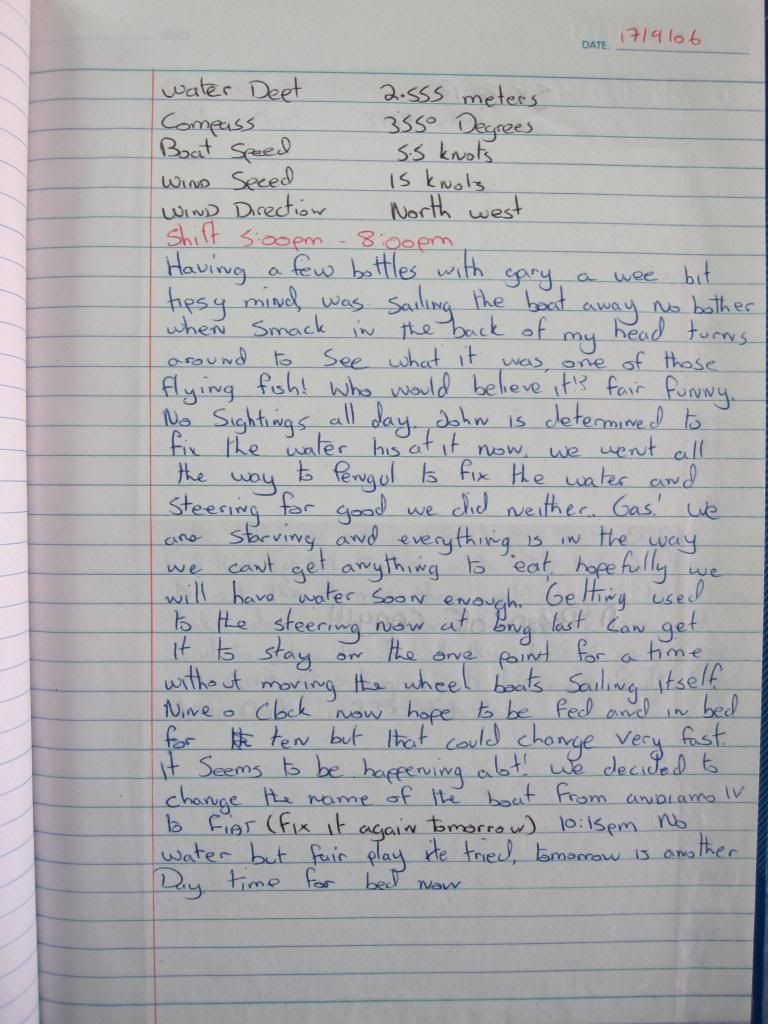 DATE: 17/9/06
Water Deet 2.555 meters
Compass 355° Degrees
Boat Speed 5.5 knots
Wind Seced 15 knots
Wind Direction North west
Shift 5:00pm - 8:00pm
Having a few bottles with gary a wee bit
tipsy mind, was sailing the boat away no bother
when smack in the back of my head turns
around to see what it was, one of those
flying fish! Who would believe it!? fair funny.
No Sightings all day. John is determined to
fix the water his at it now. we went all
the way to Pengol to fix the water and
Steering for good we did neither.. Gas! we
are starving and everything is in the way
we cant get anything to eat, hopefully we
will have water soon enough. Getting used
to the steering now at long last can get
it to stay on the one point for a time
without moving the wheel boats sailing itself.
Nine o Clock now hope to be fed and in bed
for ten but that could change very fast.
it seems to be happening alot! we decided to
change the name of the boat from andiamo IV
to FIAT (fix it again tomorrow) 10:15pm No
water but fair play he tried, tomorrow is another
Day time for bed now